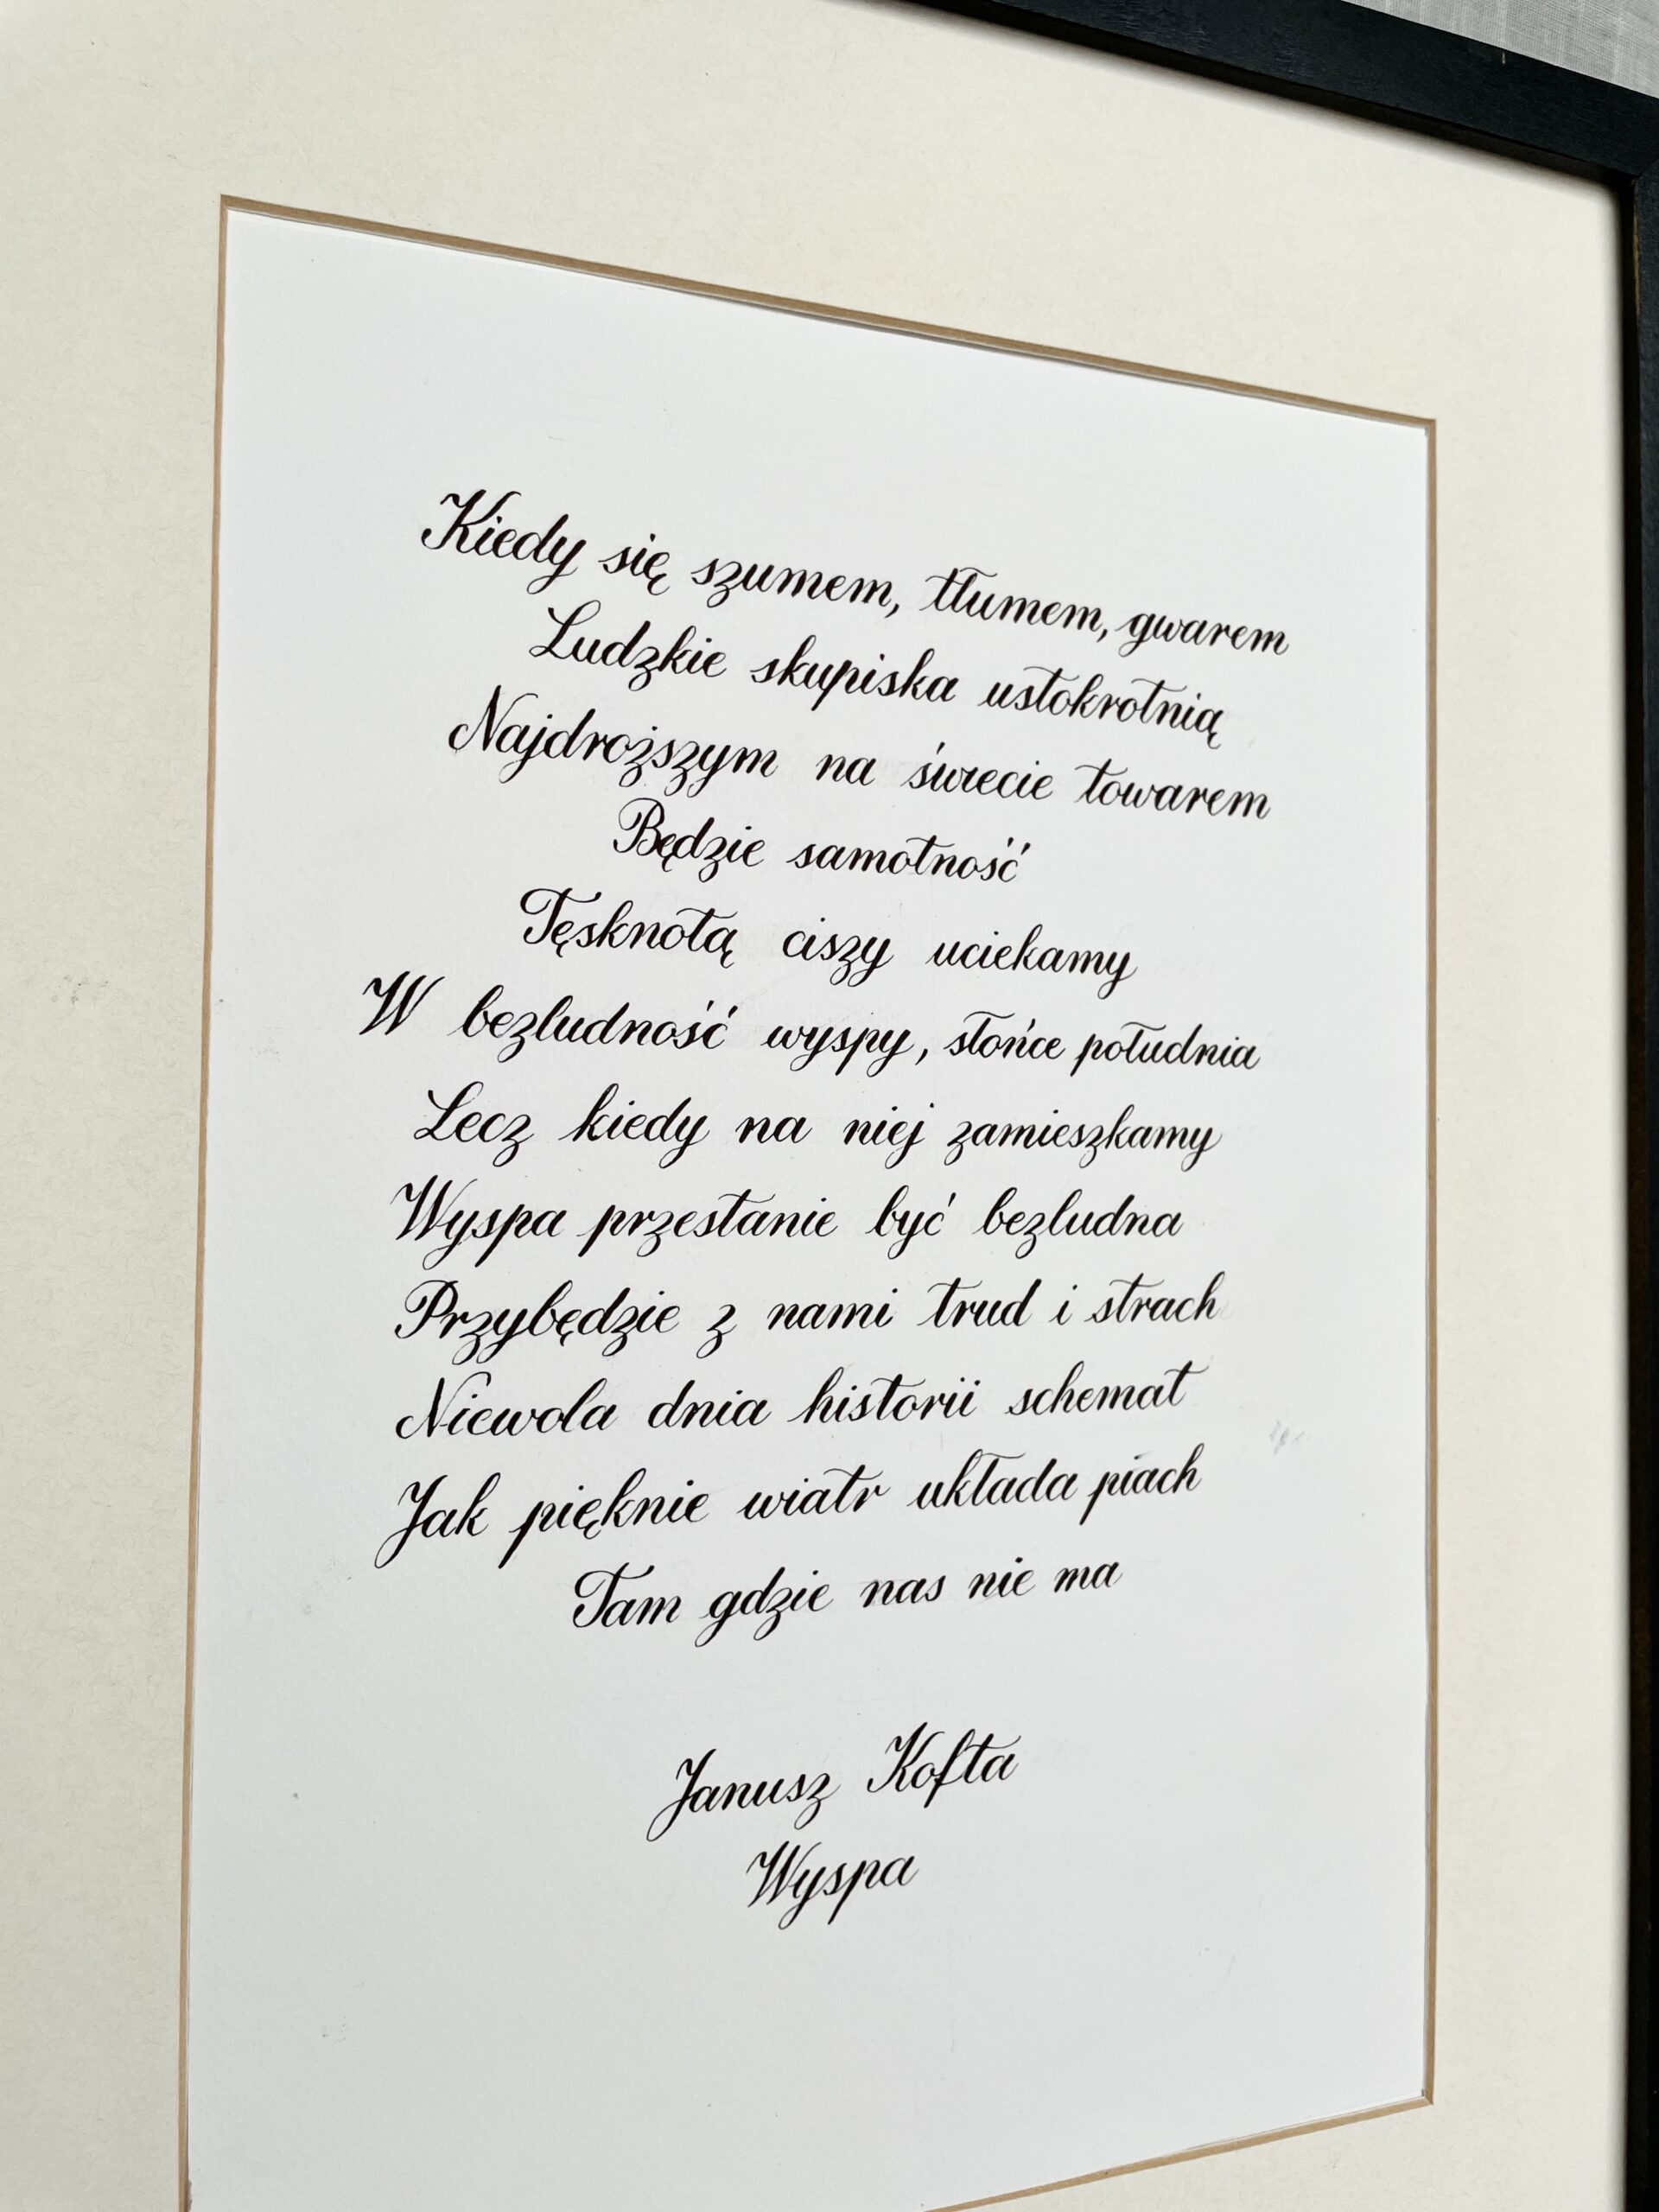 Kiedy się szumem, tłumem, gwarem
Ludzkie skupiska ustokrotnią
Najdroższym na świecie towarem
Będzie samotność
Tęsknotą ciszy uciekamy
W bezludność wyspy, słońce południa
Lecz kiedy na niej zamieszkamy
Wyspa przestanie być bezludna
Przybędzie z nami trud i strach
Niewola dnia historii schemat
Jak pięknie wiatr układa piach
Tam gdzie nas nie ma
Janusz Kofta
Wyspa